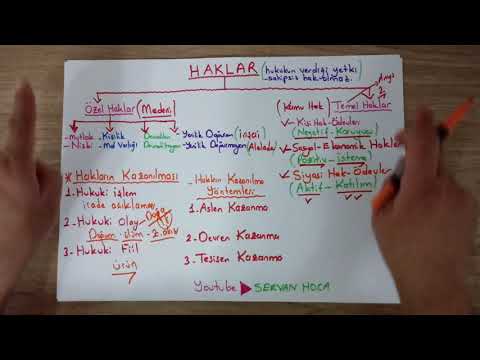 HAKLAR (hukukun verdiği yetki
- sahipsiz hak olmaz.
Anys
Özel Haklar (Medeni)
(Kamu Hak) Temel Haklar
- Mutlak - Kişilik - Devredilen - Yenilik Doğuran (inşai)
- Nisbi - Mal Varlığı - Devredilmeyen - Yenilik Doğurmayan (Alelade)
- Kişi Hak-Ödevleri
(Negatif - Koruyucu)
- Sosyal-Ekonomik Haklar
(Pozitif - isteme)
- Siyasi Hak-Ödevler
(Aktif - Katılım)
* Hakların Kazanılması
1. Hukuki işlem
irade açıklaması
2. Hukuki Olay - Doğa
Doğum - ölüm -
3. Hukuki Fiil
ürün
- Hakkın Kazanılma
Yöntemleri
1. Aslen Kazanma
2. Devren Kazanma
3. Tesisen Kazanma
Youtube SERVAN HOCA